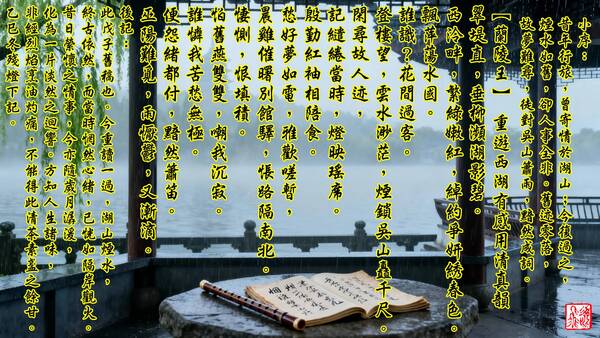 小序：
昔年行旅，曾寄情於湖山；今復過之，
煙水如舊，卻人事全非。舊迹零落，
故夢難尋，徒對吳山蕭雨，黯然成詞。
【蘭陵王】 重遊西湖有感用清真韻
翠堤直，垂柳瀕湖影碧。
西泠畔，繁綠嫩紅，綽約爭妍綉春色。
飄蕭蕩水國。
誰識？花間過客。
登樓望，雲水渺茫，煙鎖吳山矗千尺。
閒尋故人迹，
記繾綣當時，燈映瑤席。
殷勤紅袖相陪食。
愁好夢如電，雅歡嗟暫，
晨雞催曙別館驛，悵路隔南北。
悽惻，恨填積。
怕舊燕雙雙，嘲我沉寂。
誰憐我苦愁無極。
便怨緒都付，黯然蕭笛。
巫陽難覓，雨懨鬱，又漸滴。
後記：
此戊子舊稿也。今重讀一過，湖山煙水，
終古依然，而當時惘然心緒，已恍如隔岸觀火。
昔日縈懷之情事，今亦隨歲月漶漫，
化為一片淡然之迴響。方知人生諸味，
非經別焰烹油灼痛，不能得此清茶素盞之餘甘。
乙巳冬殘燈下記。